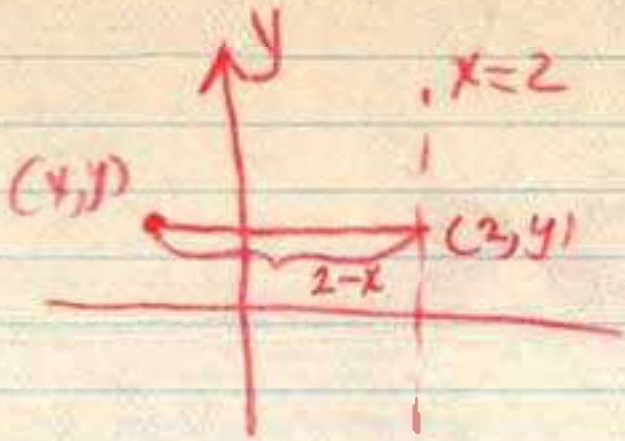 y
x=2
(x,y)
(2,y)
2-x